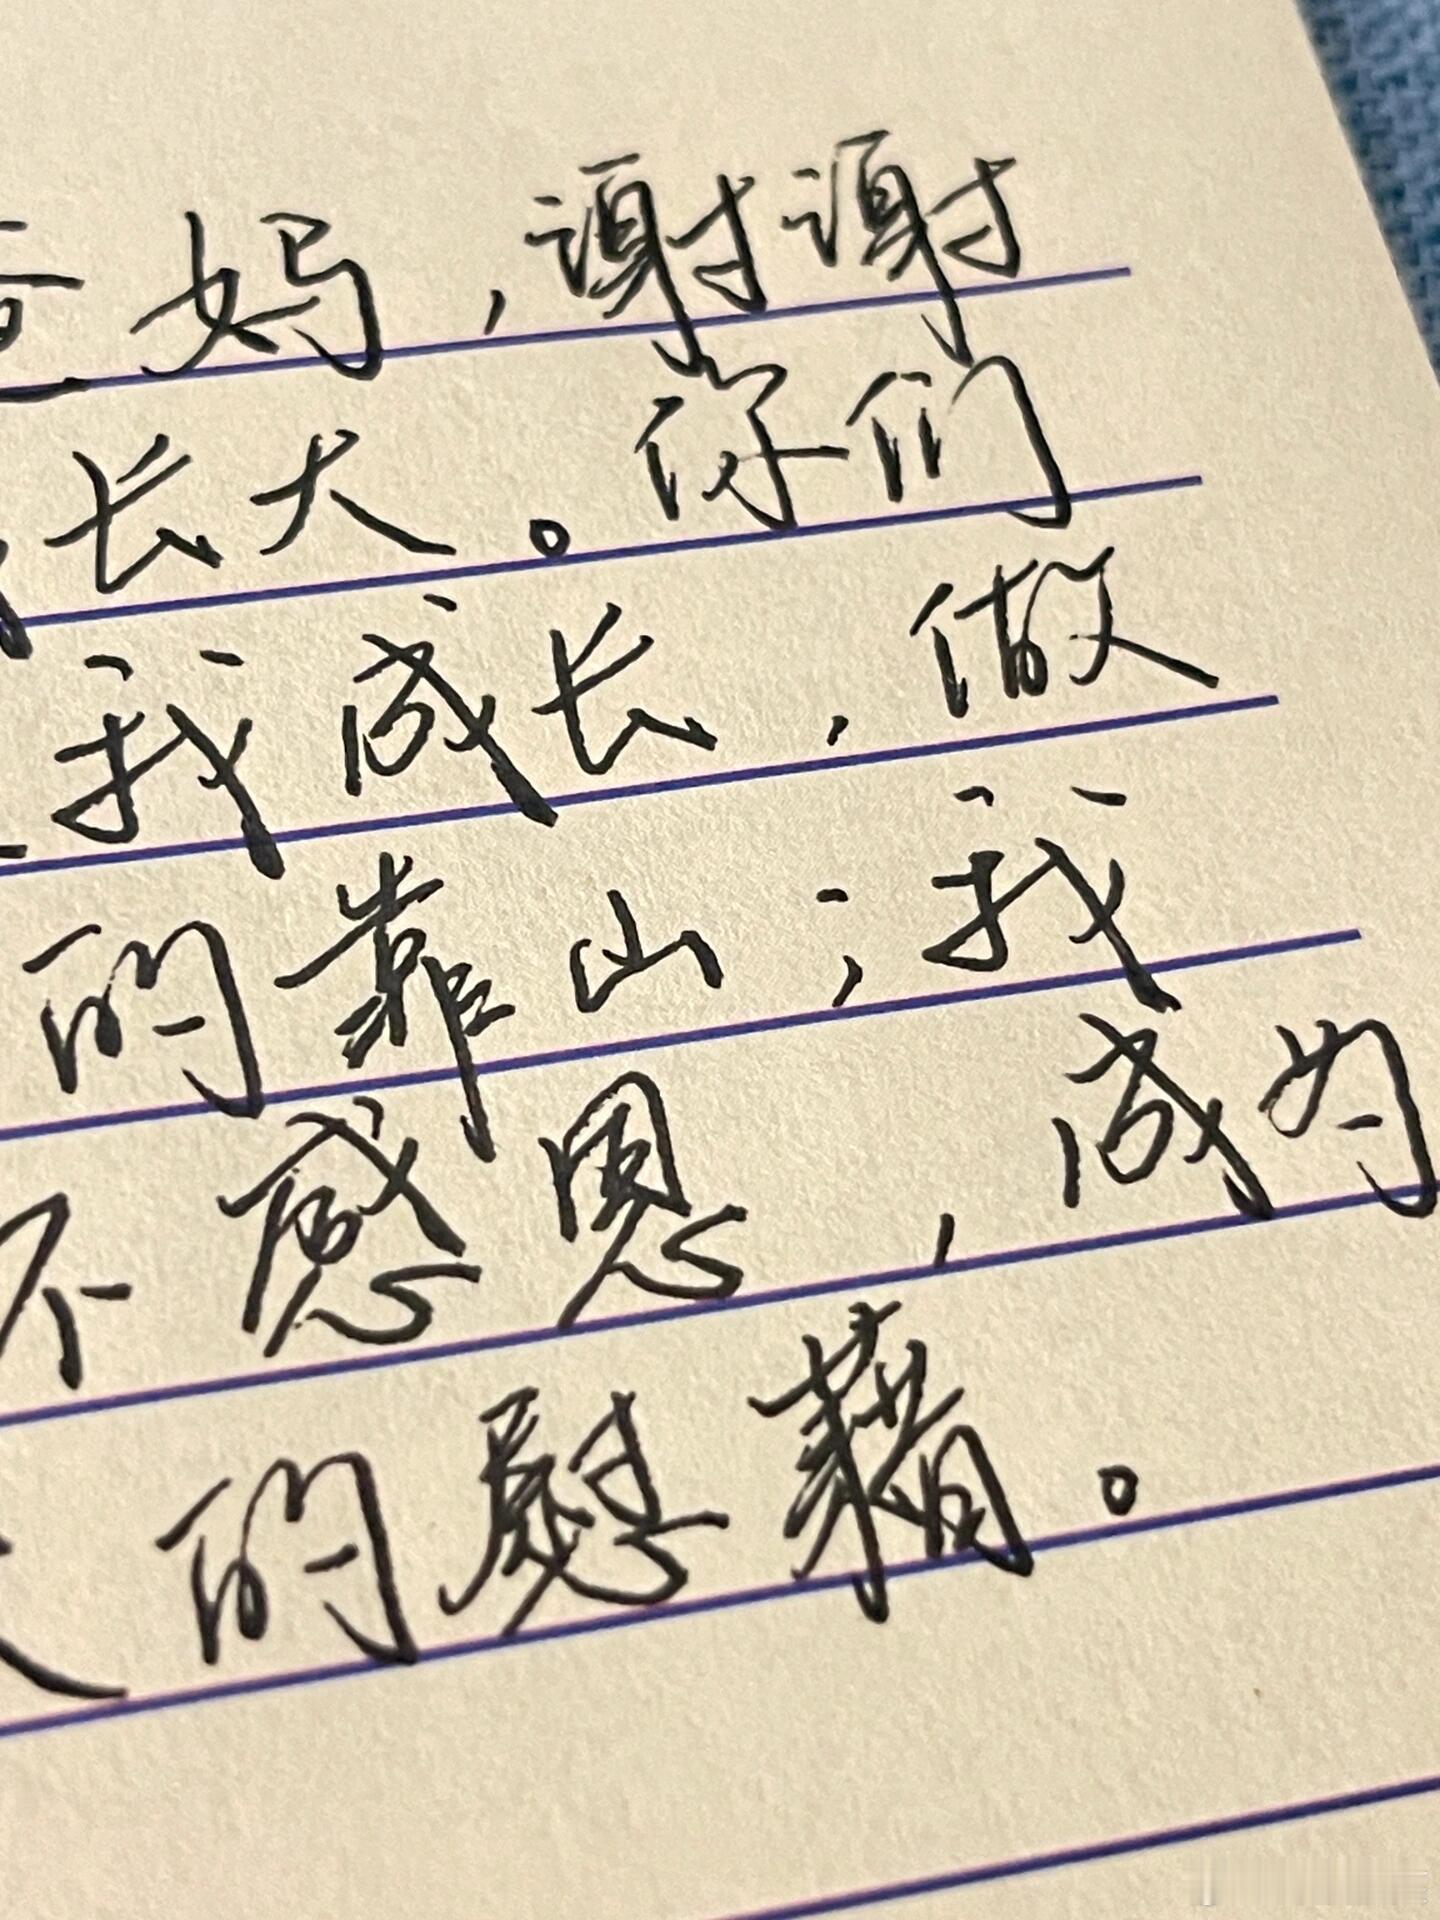 妈，谢谢
长大。你们
我成长，做
的靠山；我
不感恩，成为
的慰藉。